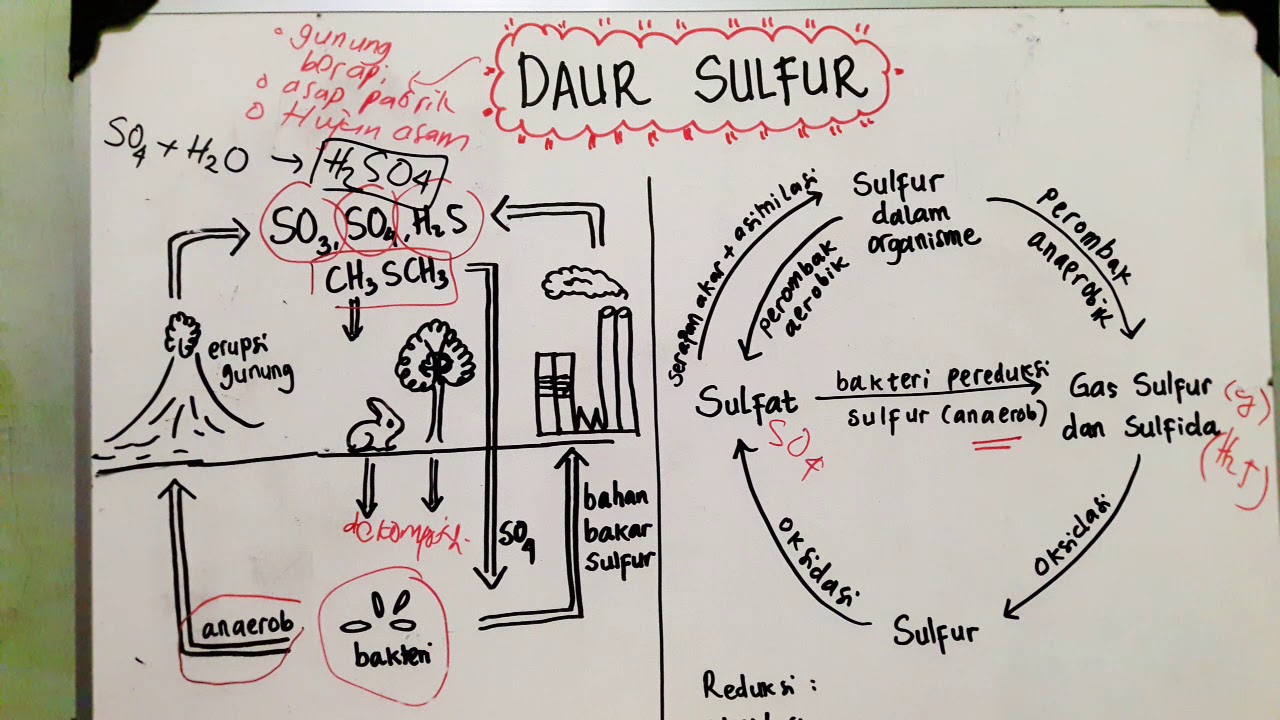 DAUR SULFUR
• gunung
berapi
o asap pabrik
o Hujan asam
SO4 + H2O → H2SO4
SO3, SO4, H2S
CH3SCH3
erupsi
gunung
dekomposisi
SO4
bahan
bakar
sulfur
anaerob
bakteri
Sulfur
dalam
organisme
Serapan akar + asimilasi
perombak
aerobik
perombak
anaerobik
Sulfat
SO4
bakteri pereduksi
sulfur (anaerob)
Gas Sulfur (g)
dan Sulfida
oksidasi
oksidasi
Sulfur
Reduksi :